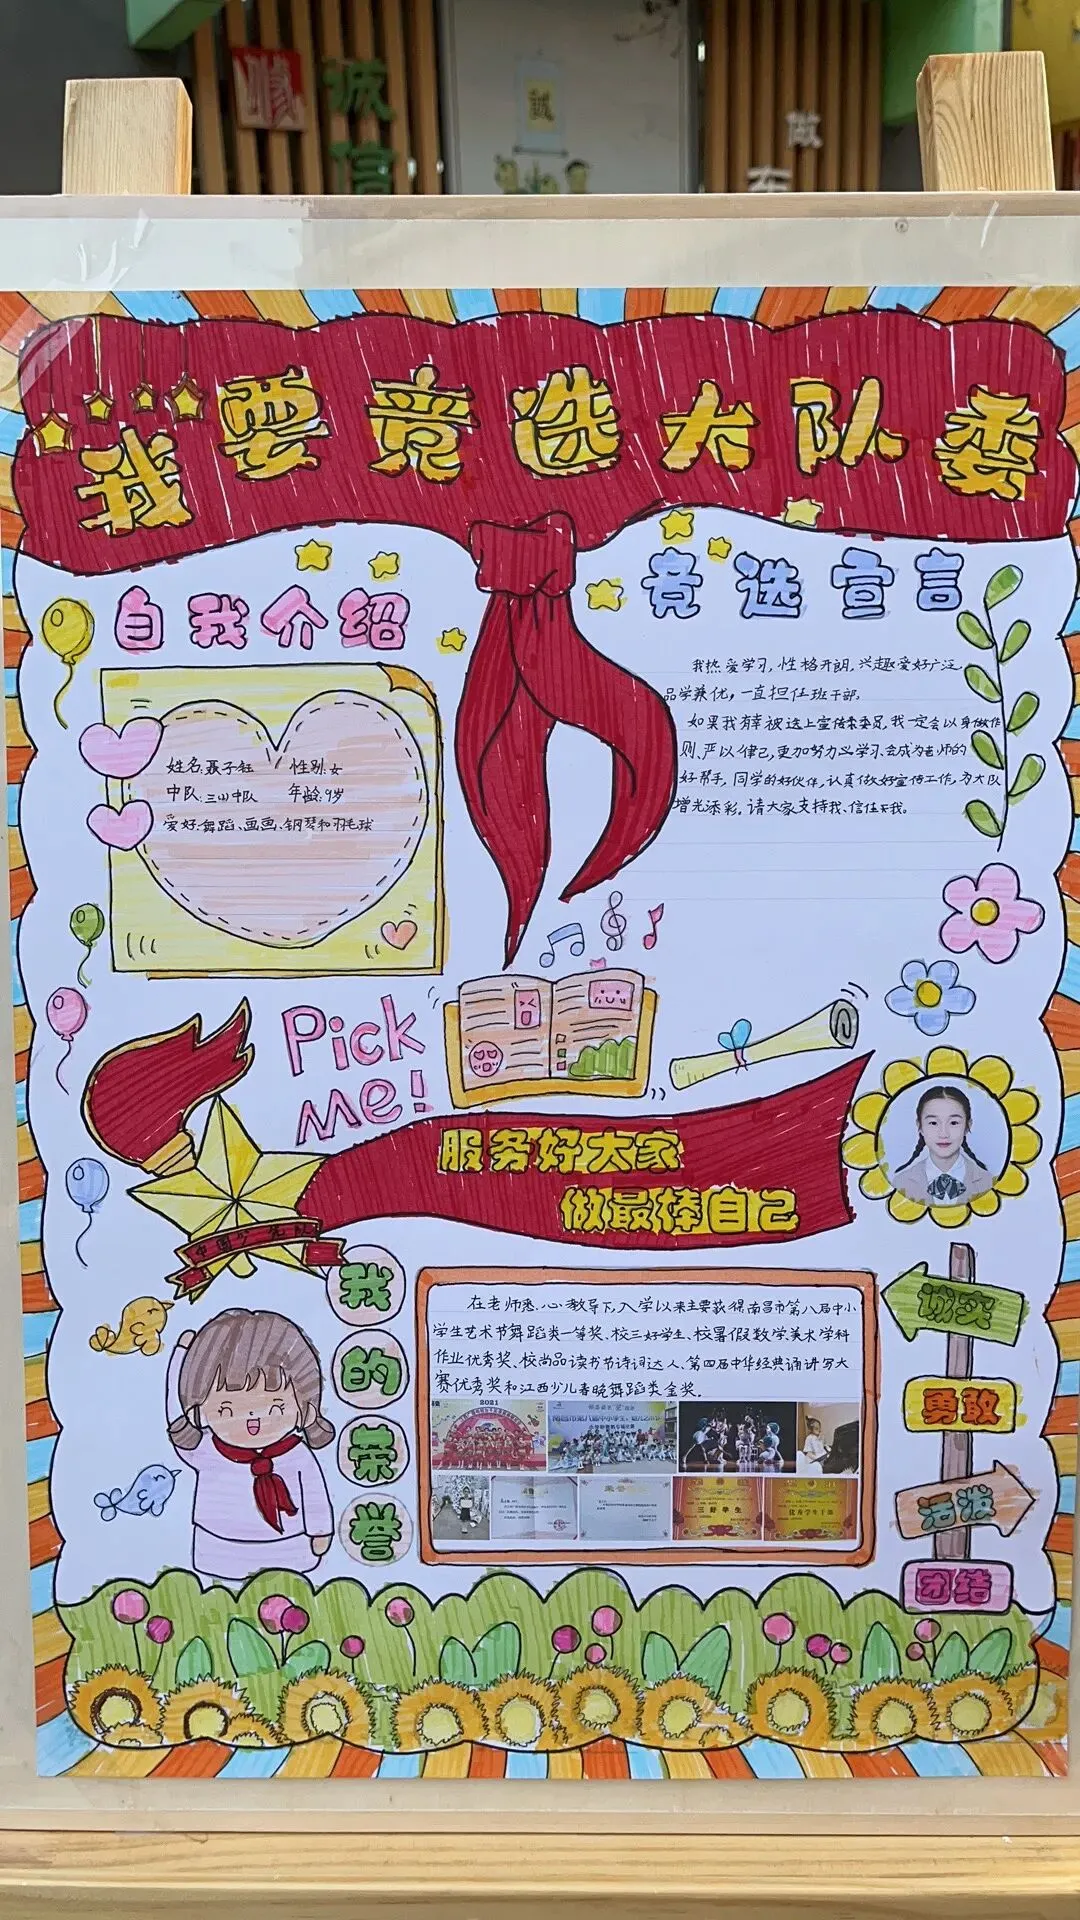 修
诚
信
誠
做
我要竞选大队委
自我介绍
姓名:聂子钰 性别:女
中队:三(1)中队 年龄:9岁
爱好:舞蹈、画画、钢琴和羽毛球
竞选宣言
我热爱学习,性格开朗,兴趣爱好广泛,
品学兼优,一直担任班干部,
如果我有幸被选上宣传委员,我一定会以身做作
则,严以律己,更加努力学习,会成为老师的
好帮手,同学的好伙伴,认真做好宣传工作,为大队
增光添彩。请大家支持我、信任我。
Pick
Me!
服务好大家
做最棒自己
中国少先队
我的荣誉
在老师悉心教导下,入学以来主要获得南昌市第八届中小
学生艺术节舞蹈类一等奖、校三好学生、校暑假数学美术学科
作业优秀奖、校尚品读书节诗词达人、第四届中华经典诵讲写大
赛优秀奖和江西少儿春晚舞蹈类金奖.
2021
荣誉证书
三好学生
优秀学生干部
诚实
勇敢
活泼
团结